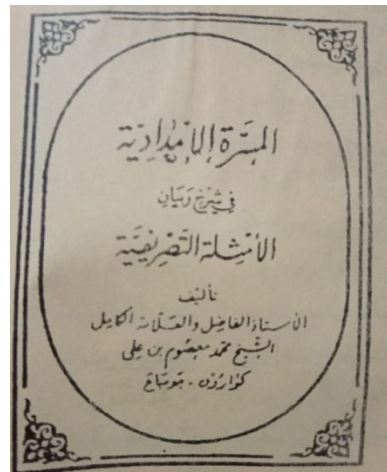 المسرة الإمدادية
في شرح وبيان
الأمثلة التصريفية
تأليف
الأستاذ الفاضل والعلامة الكامل
الشيخ محمد معصوم بن علي
كوارون - جومباغ